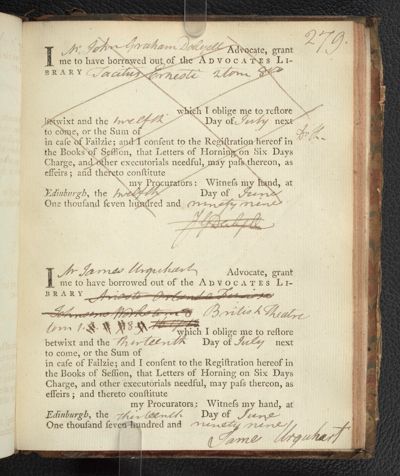 279.
I Mr John Graham Dalyell Advocate, grant
me to have borrowed out of the ADVOCATES LI-
BRARY Tacitus Ernesti 2 tom 8vo
which I oblige me to reſtore
betwixt and the twelfth Day of July next
to come, or the Sum of
in caſe of Failzie; and I conſent to the Regiſtration hereof in
the Books of Seſſion, that Letters of Horning on Six Days
Charge, and other executorials needful, may paſs thereon, as
effeirs; and thereto conſtitute
my Procurators: Witneſs my hand, at
Edinburgh, the twelfth Day of June
One thouſand ſeven hundred and ninety nine
J G Dalyell
I Mr James Urquhart Advocate, grant
me to have borrowed out of the ADVOCATES LI-
BRARY Ariosto Orlando Furioso
Johnsons Works tom 8 British Theatre
tom 1
which I oblige me to reſtore
betwixt and the thirteenth Day of July next
to come, or the Sum of
in caſe of Failzie; and I conſent to the Regiſtration hereof in
the Books of Seſſion, that Letters of Horning on Six Days
Charge, and other executorials needful, may paſs thereon, as
effeirs; and thereto conſtitute
my Procurators: Witneſs my hand, at
Edinburgh, the thirteenth Day of June
One thouſand ſeven hundred and ninety nine
James Urquhart